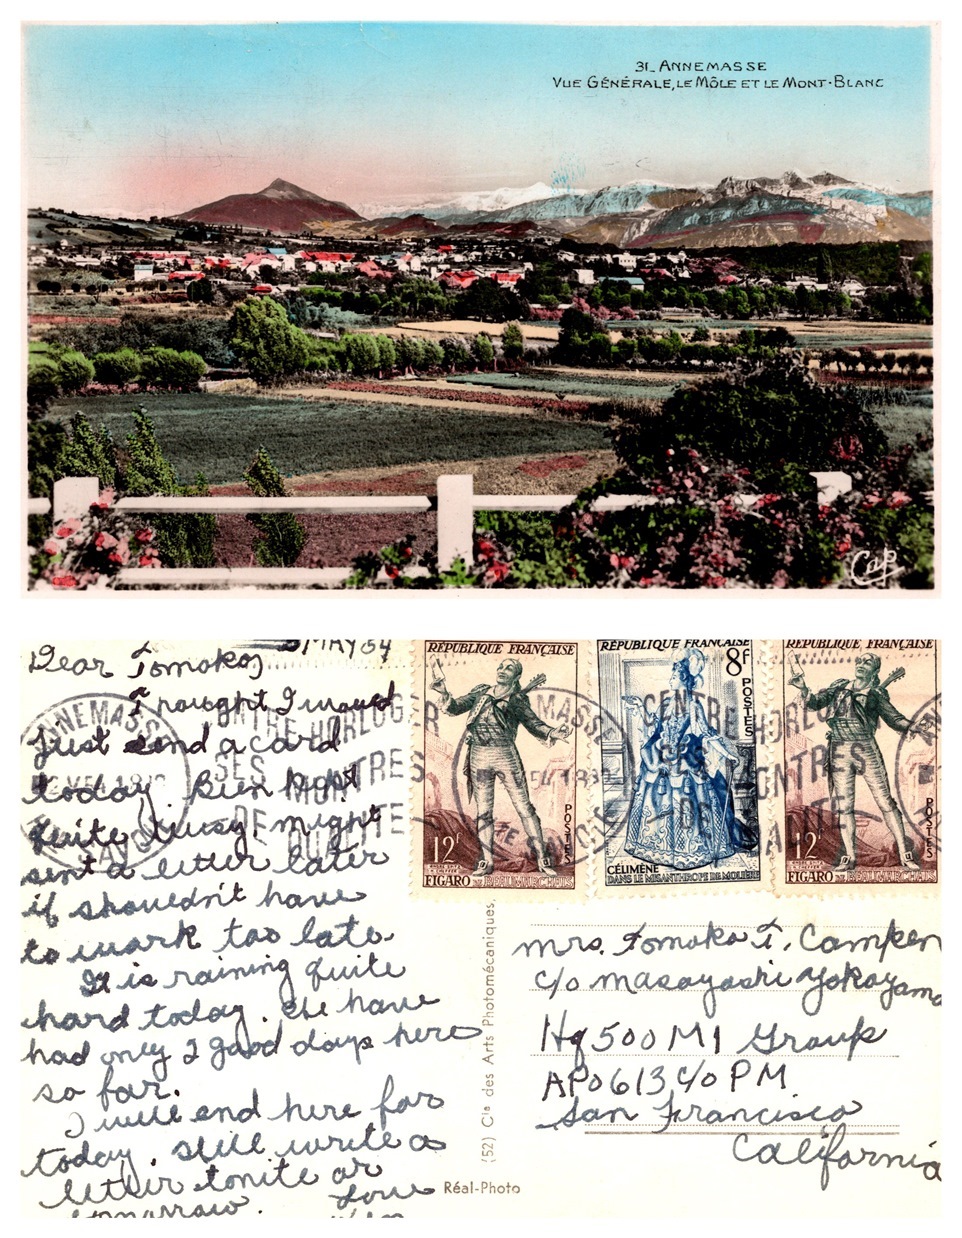 31_ANNEMASSE
VUE GÉNÉRALE, LE MÔLE ET LE MONT-BLANC
Cap
Dear Tomoko,
MAY 54
Thought I would
just send a card
today. Been
quite busy. might
sent a letter later
if shouldn't have
to work too late.
It is raining quite
hard today. We have
had only 2 good days here
so far.
I will end here for
today. Still write a
letter tonite or
tomorrow.
Love
RÉPUBLIQUE FRANÇAISE
12F
POSTES
FIGARO DE BEAUMARCHAIS
RÉPUBLIQUE FRANÇAISE
8F
POSTES
CÉLIMÈNE
DANS LE MISANTHROPE DE MOLIÈRE
RÉPUBLIQUE FRANÇAISE
12F
POSTES
FIGARO DE BEAUMARCHAIS
ANNEMASSE
SAVOIE
CENTRE HORLOGER
SES
MONTRES
DE
QUALITE
(52) Cie des Arts Photomécaniques.
Réal-Photo
Mrs. Tomoko T. Campen
c/o Masayoshi Yokoyama
Hq 500 MI Group
APO 613, c/o PM
San Francisco
California